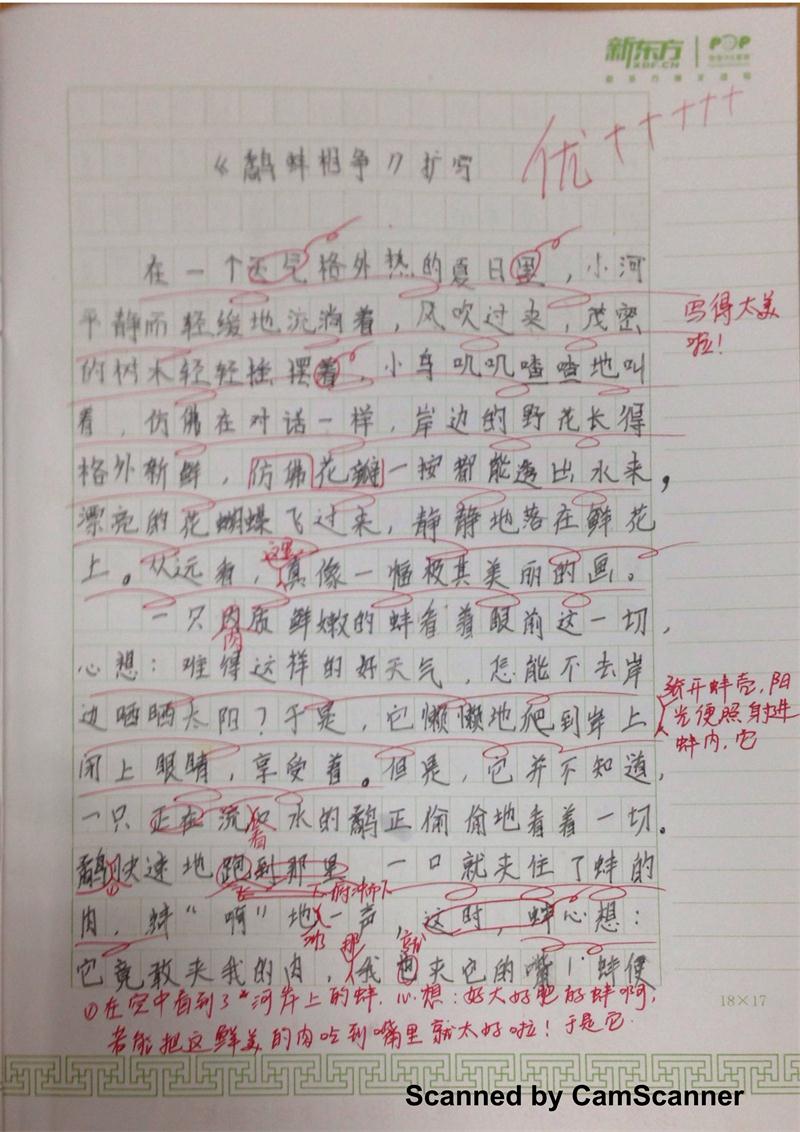 新东方 POP
XDF.CN
优+++++
《鹬蚌相争》扩写
在一个还是格外热的夏日里，小河
平静而轻缓地流淌着，风吹过来，茂密
写得太美
啦！
的树木轻轻摇摆着，小鸟叽叽喳喳地叫
着，仿佛在对话一样，岸边的野花长得
格外新鲜，仿佛花瓣一按都能透出水来，
漂亮的花蝴蝶飞过来，静静地落在鲜花
这里
上。从远看，真像一幅极其美丽的画。
一只肉质鲜嫩的蚌看着眼前这一切，
肉
心想：难得这样的好天气，怎能不去岸
边晒晒太阳？于是，它懒懒地爬到岸上
张开蚌壳，阳
光便照射进
蚌内，它
闭上眼睛，享受着。但是，它并不知道，
一只正在流水的鹬正偷偷地看着一切。
着
鹬快速地跑到那里 一口就夹住了蚌的
①
飞 俯冲而下
肉，蚌“啊”地一声，这时，蚌心想：
那
它竟敢夹我的肉，我也夹它的嘴！蚌便
①在空中看到了河岸上的蚌，心想：好大好肥的蚌啊，
若能把这鲜美的肉吃到嘴里就太好啦！于是它
18×17
Scanned by CamScanner